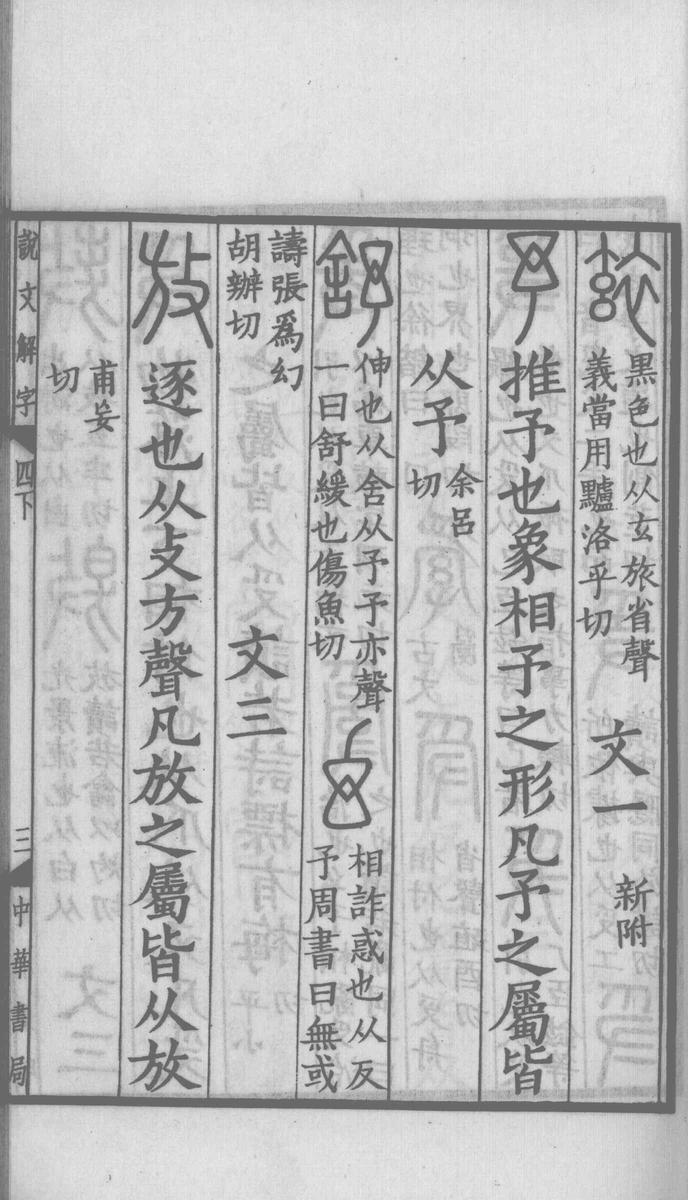 玈
黑色也从玄旅省聲
義當用驢洛乎切
文一
新附
予
推予也象相予之形凡予之屬皆
从予
余呂
切
舒
伸也从舍从予予亦聲
一曰舒緩也傷魚切
幻
相詐惑也从反
予周書曰無或
譸張爲幻
胡辦切
文三
放
逐也从攴方聲凡放之屬皆从放
甫妄
切
說文解字
四下
三
中華書局